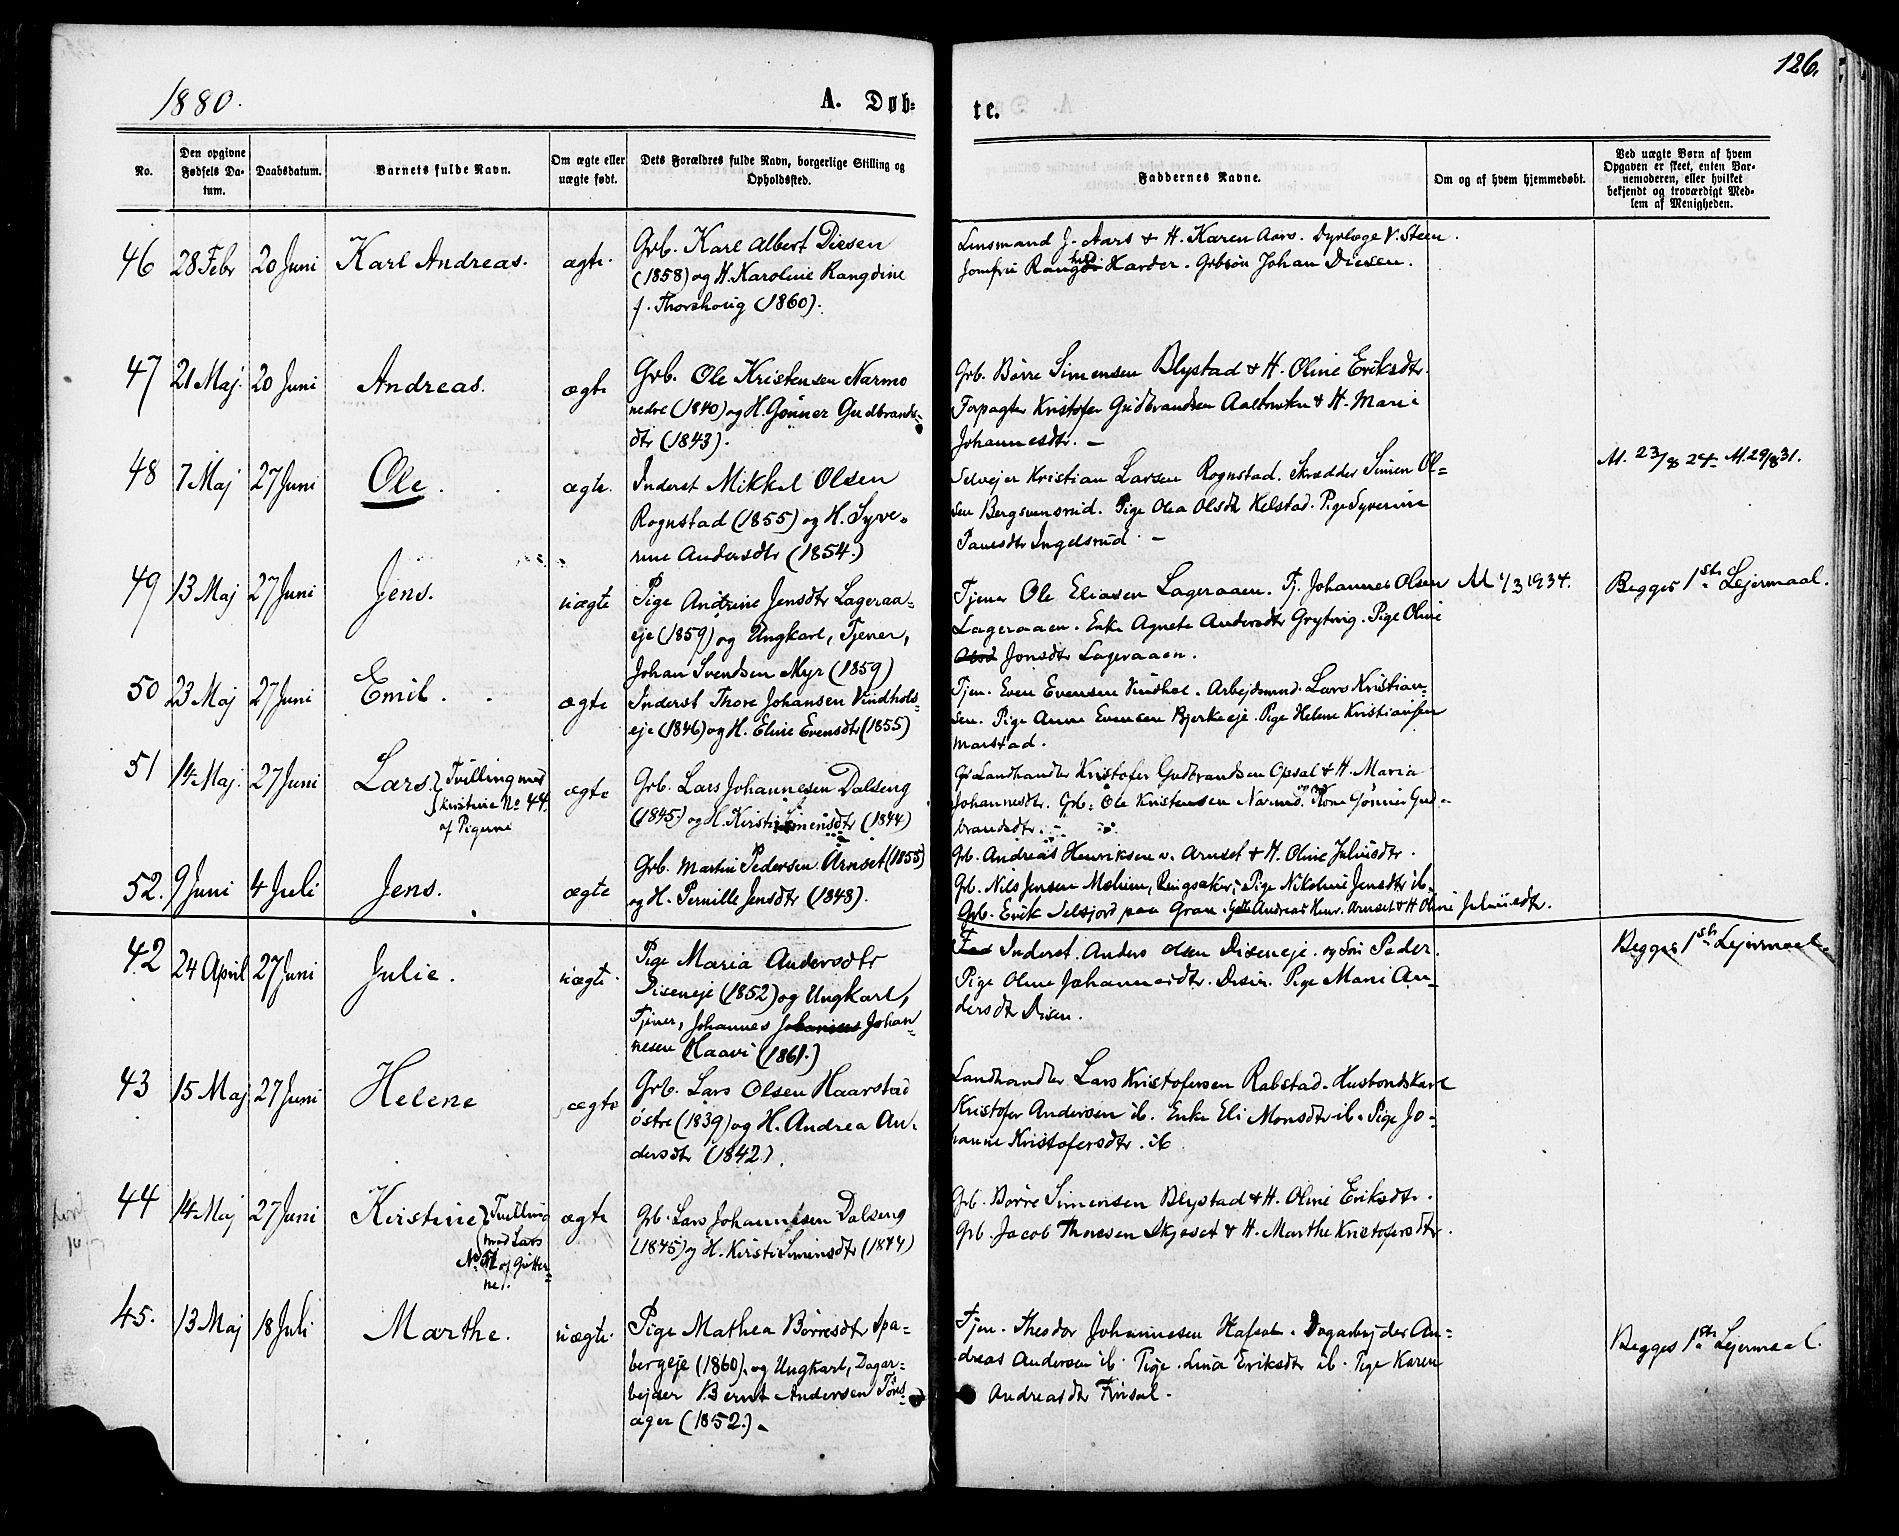 126.
1880.
A. Døb-
te.
No.
Den opgivne
Fødsels Da-
tum.
Daabsdatum.
Barnets fulde Navn.
Om ægte eller
uægte født.
Dets Forældres fulde Navn, borgerlige Stilling og
Opholdssted.
Faddernes Navne.
Om og af hvem hjemmedøbt.
Ved uægte Børn af hvem
Opgaven er skeet, enten Bar-
nemoderen, eller hvilket
bekjendt og troværdigt Med-
lem af Menigheden.
46 28 Febr 20 Juni Karl Andreas. ægte.
Grb. Karl Albert Diesen
(1858) og H. Karoline Rangdine
f. Thorshoug (1860).
Lensmand J. Aars & H. Karen Aars. Dyrlæge V. Steen.
Jomfru Harder. Grbsøn Johan Diesen.
47 21 Maj. 20 Juni Andreas. ægte
Grb. Ole Kristensen Narmo
nedre (1840) og H. Gønner Gudbrands-
dtr (1843).
Grb. Børre Simensen Blystad & H. Oline Eriksdtr.
Forpagter Kristofer Gudbrandsen & H. Maria
Johannesdtr. -
48 7 Maj 27 Juni Ole. ægte.
Inderst Mikkel Olsen
Rognstad (1855) og H. Syve-
rine Andersdtr (1854.)
Selvejer Kristian Larsen Rognstad. Skrædder Simen Ol-
sen Bergsvensrud. Pige Olea Olsdtr Helstad. Pige Syverine
Paulsdtr Ingelsrud. -
M. 23/8 24 - M. 29/8 31.
49 13 Maj 27 Juni Jens. uægte
Pige Andrine Jensdtr Lageraa-
eje (1859) og Ungkarl, Tjener,
Johan Svendsen Myr (1859)
Tjener Ole Eliasen Lageraaen. Tj. Johannes Olsen
Lageraaen. Enke Agnete Andersdtr Grytvig. Pige Oline
Jonsdtr Lageraaen.
M 1/3 1934.
Begges 1ste Lejermaal.
50 23 Maj 27 Juni Emil. ægte
Inderst Thore Johansen Vindhols-
eje (1846) og H. Eline Evensdtr (1855)
Tjen. Even Evensen Vindhol. Arbejdsmd. Lars Kristian-
sen. Pige Anne Evensen Bjerkeeje. Pige Helene Kristiansen
Marstad.
51 14 Maj. 27 Juni Lars. ægte
Tvilling med
Kirstine No 44.
af Pigerne
Grb. Lars Johannesen Dalseng
(1845) og H. Kirsti Simensdtr (1844)
Landhandler Kristofer Gudbrandsen Opsal & H. Maria
Johannesdtr. Grb. Ole Kristensen Narmo og Kone Gønner Gud-
brandsdtr. -
52. 9 Juni 4 Juli Jens. ægte
Grb. Martin Pedersen Arnset (1855)
og H. Pernille Jensdtr (1848).
Grb. Andreas Henriksen v. Arnset & H. Oline Juliusdtr.
Grb. Nils Jensen Mælum, Ringsaker. Pige Nikoline Jensdtr ib.
Grb. Erik Selsjord paa Gran. Andreas Henr. Arnset & H Oline Juliusdtr.
42 24 April 27 Juni Julie. uægte.
Pige Maria Andersdtr
Diseneje (1852) og Ungkarl,
Tjener, Johannes Johan-
nesen Haavi (1861.)
Inderst Anders Olsen Diseneje og Søn Peder.
Pige Oline Johannesdtr. Disen. Pige Mari An-
dersdtr Disen.
Begges 1ste Lejermaal.
43 15 Maj 27 Juni Helene ægte
Grb. Lars Olsen Haarstad
østre (1839) og H. Andrea An-
dersdtr (1842).
Landhandler Lars Kristofersen Rabstad. Husbondskarl
Kristofer Andersen ib. Enke Eli Monsdtr ib. Pige Jo-
hanne Kristofersdtr. ib
44 14 Maj 27 Juni Kirstine ægte
Tvilling
med Lars
No 51 af Gutter-
ne).
Grb. Lars Johannesen Dalseng
(1845) og H. Kirsti Simensdtr (1844)
Grb. Børre Simensen Blystad & H. Oline Eriksdtr.
Grb. Jacob Thoresen Skjeset & H. Marthe Kristofersdtr.
45. 13 Maj 18 Juli Marthe. uægte.
Pige Mathea Børresdtr Spa-
bergeje (1860) og Ungkarl, Dagar-
bejder Bernt Andersen Tøns-
ager (1852.) -
Tjen. Theodor Johannesen Hafsal. Dagarbejder An-
dreas Andersen ib. Pige Lina Eriksdtr ib. Pige Karen
Andreasdtr Finsal.
Begges 1ste Lejermaal.